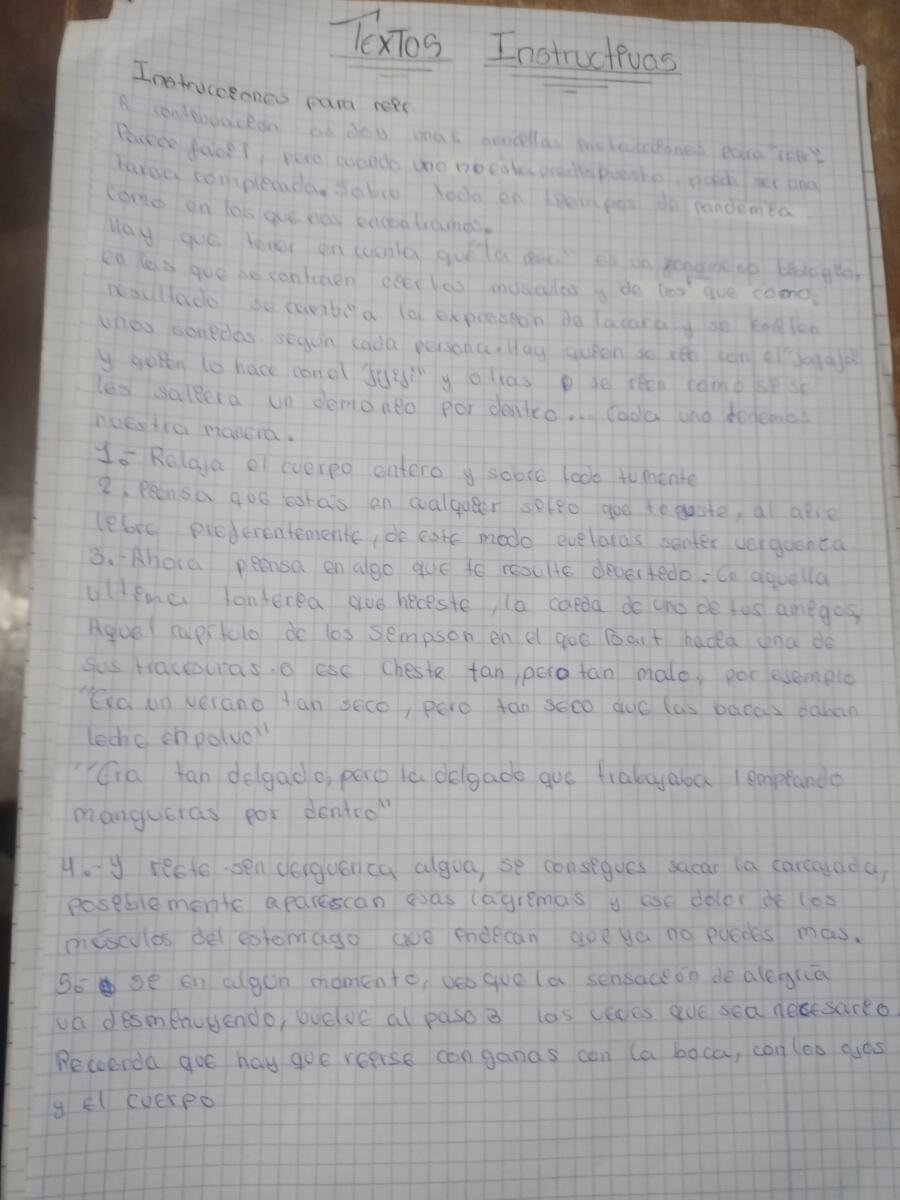 Textos Instructevas
Instrucceones para reer
A contenuaceón os doy unas sencellas instrucceones para "reer"
Parece fácel, pero cuando uno no esta predespuesto, puede ser una
tarea complecada. Sobre todo en teempos de pandemea
como en los que nos encontramos.
Hay que tener en cuenta que "la resa" es un beologeo,
en los que se contraen ceertos musculos y de los que como,
resultado se cambea la expreseón de la cara y se emeten
unos sonedos según cada persona. Hay queen se ree con el "jajaja"
y queen lo hace con el "jejeje" y otras se reen como se se
les saleera un demoneo por dentro... Cada uno tenemos
nuestra manera.
1.- Relaja el cuerpo entero y sobre todo tu mente
2. Peensa que estás en cualqueer seteo que te guste, al aere
lebre preferentemente, de este modo evetaras senter verguenca
3.- Ahora peensa en algo que te resulte devertedo. En aquella
ultema tonterea que heceste, la caeda de uno de tus amegos,
Aquel capítulo de los Sempson en el que Bart hacea una de
sus traceuras o ese cheste tan, pero tan malo, por esemplo
"Era un verano tan seco, pero tan seco que las bacas daban
leche en polvo"
"Era tan delgado, pero ta delgado que trabajaba lempeando
mangueras por dentro"
4.- y reete sen verguenca algua, se consegues sacar la carcajada,
poseblemente aparescan esas lagremas y ese dolor de los
músculos del estomago que endecan que ya no puedes mas.
5.- se en algun momento, ves que la sensaceón de alegría
va desmenuyendo, vuelve al paso 3 las veces que sea necesareo
Recuerda que hay que reerse con ganas con la boca, con los ojos
y el cuerpo